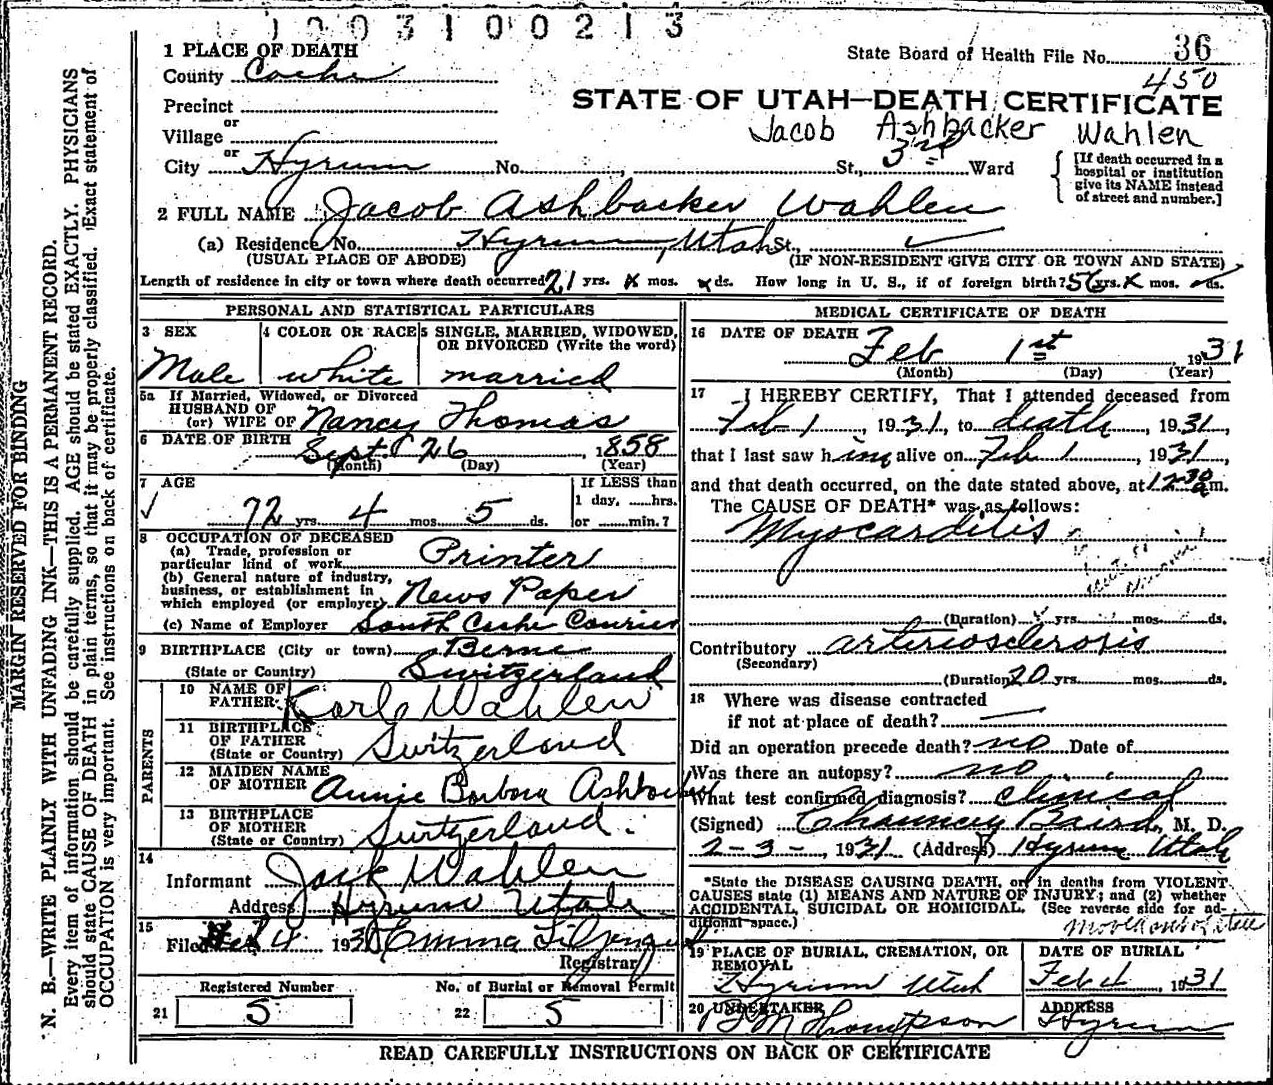 1003100213
1 PLACE OF DEATH
State Board of Health File No. 36
County Cache
450
Precinct
STATE OF UTAH—DEATH CERTIFICATE
or
Village
Jacob Ashbacker Wahlen
or
City Hyrum No. St., 3rd Ward
[If death occurred in a hospital or institution give its NAME instead of street and number.]
2 FULL NAME Jacob Ashbacker Wahlen
(a) Residence No. Hyrum, Utah St.,
(USUAL PLACE OF ABODE) (IF NON-RESIDENT GIVE CITY OR TOWN AND STATE)
Length of residence in city or town where death occurred 21 yrs. x mos. x ds. How long in U. S., if of foreign birth? 56 yrs. x mos. ds.
PERSONAL AND STATISTICAL PARTICULARS
3 SEX
Male
4 COLOR OR RACE
white
5 SINGLE, MARRIED, WIDOWED, OR DIVORCED (Write the word)
married
5a If Married, Widowed, or Divorced
HUSBAND OF
(or) WIFE OF Nancy Thomas
6 DATE OF BIRTH
Sept. 26, 1858
(Month) (Day) (Year)
7 AGE
72 yrs. 4 mos. 5 ds.
If LESS than
1 day, ......hrs.
or ......min.?
8 OCCUPATION OF DECEASED
(a) Trade, profession or
particular kind of work Printer
(b) General nature of industry,
business, or establishment in
which employed (or employer) News Paper
(c) Name of Employer South Cache Courier
9 BIRTHPLACE (City or town) Berne
(State or Country) Switzerland
PARENTS
10 NAME OF
FATHER Karl Wahlen
11 BIRTHPLACE
OF FATHER
(State or Country) Switzerland
12 MAIDEN NAME
OF MOTHER Annie Barbara
13 BIRTHPLACE
OF MOTHER
(State or Country) Switzerland
14
Informant Jack Wahlen
Address Hyrum Utah
15
Filed 193 Emma
Registrar
Registered Number
21 5
No. of Burial or Removal Permit
22 5
MEDICAL CERTIFICATE OF DEATH
16 DATE OF DEATH Feb 1st 1931
(Month) (Day) (Year)
17 I HEREBY CERTIFY, That I attended deceased from
Feb 1, 1931, to death, 1931,
that I last saw him alive on Feb 1, 1931,
and that death occurred, on the date stated above, at 12:30 a.m.
The CAUSE OF DEATH* was as follows:
Myocarditis
(Duration) yrs. mos. ds.
Contributory arteriosclerosis
(Secondary)
(Duration) 20 yrs. mos. ds.
18 Where was disease contracted
if not at place of death?
Did an operation precede death? no Date of
Was there an autopsy? no
What test confirmed diagnosis? clinical
(Signed) Chauncey Baird, M. D.
2-3-, 1931 (Address) Hyrum Utah
*State the DISEASE CAUSING DEATH, or in deaths from VIOLENT
CAUSES state (1) MEANS AND NATURE OF INJURY; and (2) whether
ACCIDENTAL, SUICIDAL OR HOMICIDAL. (See reverse side for ad-
ditional space.)
19 PLACE OF BURIAL, CREMATION, OR
REMOVAL
Hyrum Utah
DATE OF BURIAL
Feb 4, 1931
20 UNDERTAKER
Thompson
ADDRESS
Hyrum
READ CAREFULLY INSTRUCTIONS ON BACK OF CERTIFICATE
MARGIN RESERVED FOR BINDING
N. B.—WRITE PLAINLY WITH UNFADING INK—THIS IS A PERMANENT RECORD.
Every item of information should be carefully supplied. AGE should be stated EXACTLY. PHYSICIANS
should state CAUSE OF DEATH in plain terms, so that it may be properly classified. Exact statement of
OCCUPATION is very important. See instructions on back of certificate.